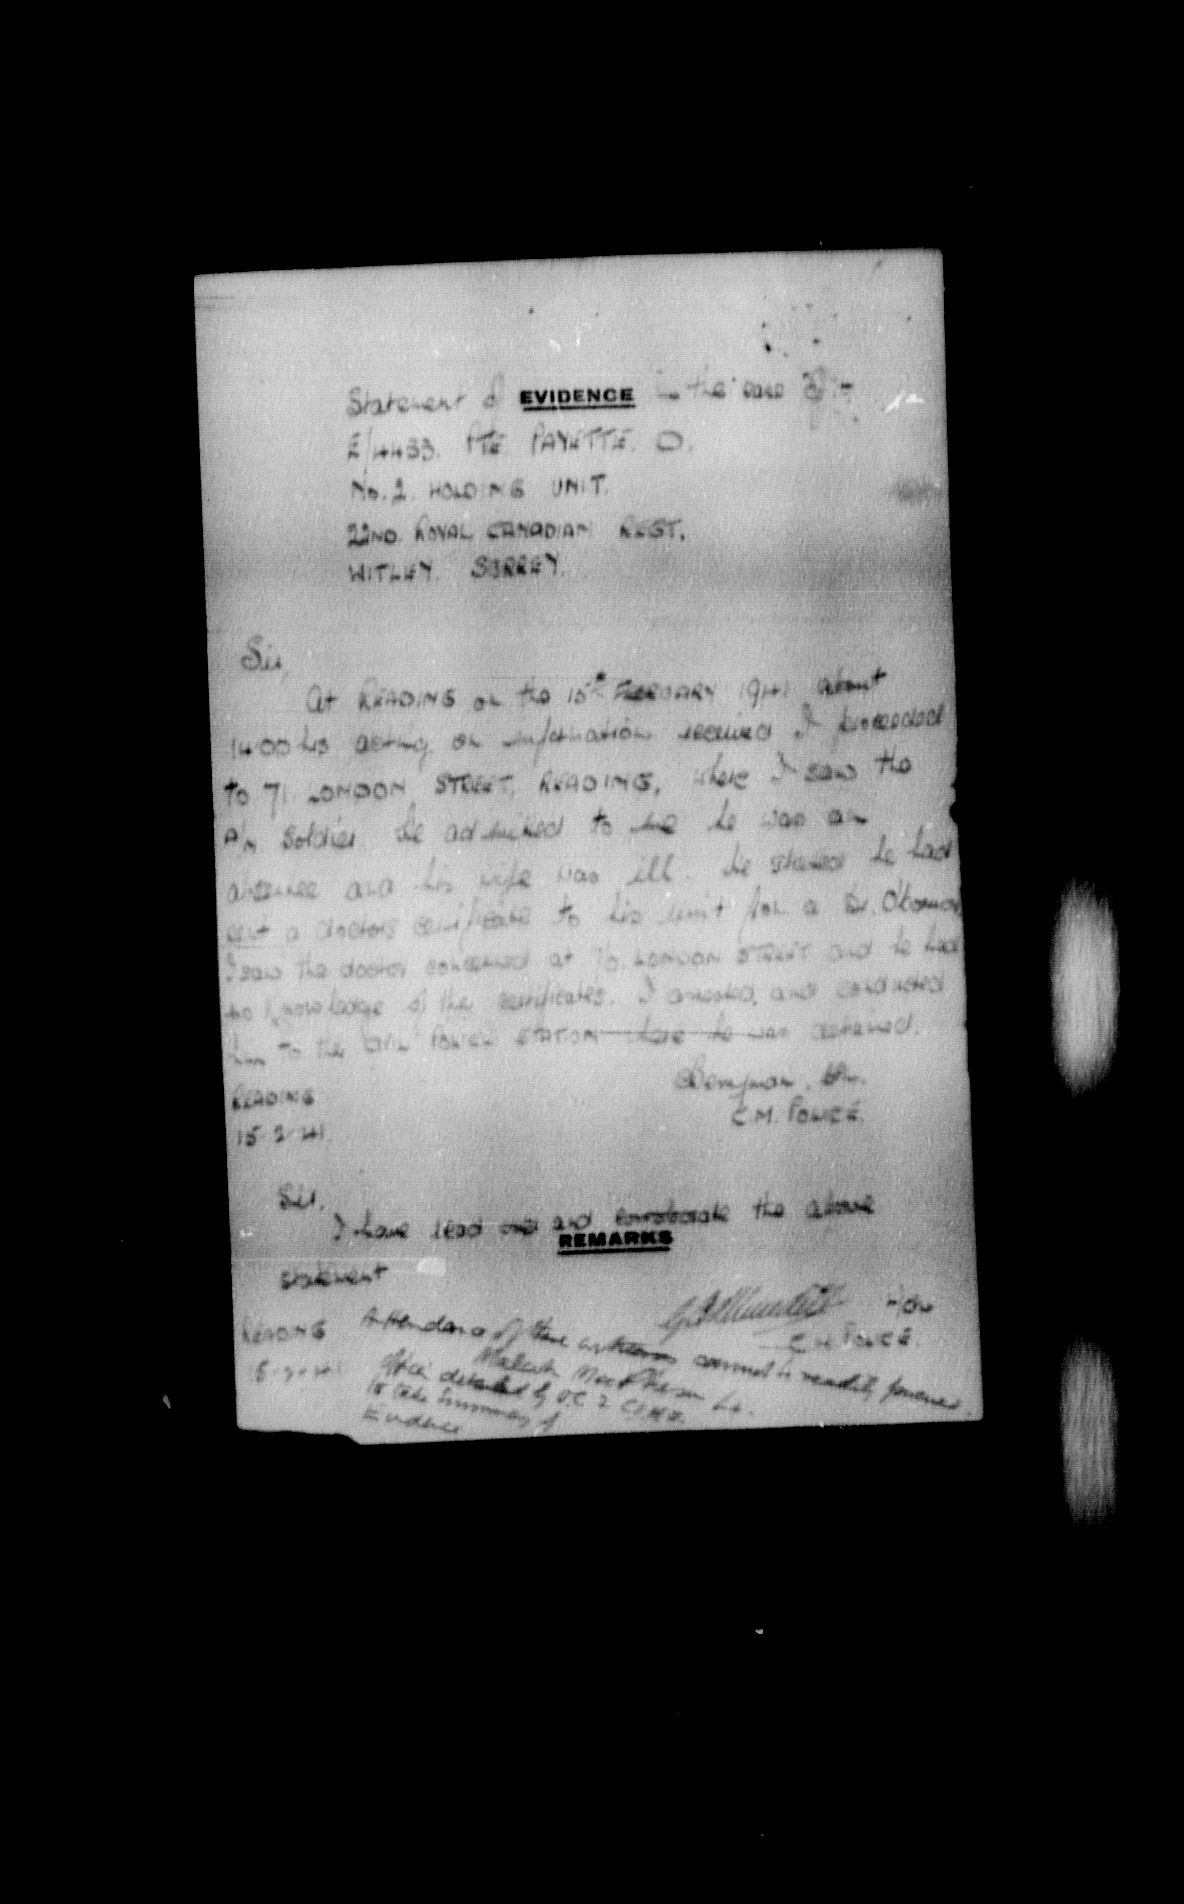 Statement of EVIDENCE in the case of :-
E/4433. PTE. PAYETTE. O.
No. 2. HOLDING UNIT.
22ND. ROYAL CANADIAN REGT.
WITLEY. SURREY.
Sir,
At READING on the 15th FEBRUARY 1941 about
1400 hrs acting on information received I proceeded
to 71. LONDON STREET, READING, where I saw the
A/M Soldier. He admitted to me he was an
absentee and his wife was ill. He stated he had
sent a doctors certificate to his unit from a Dr. O'Connor,
I saw the doctor concerned at 70. LONDON STREET and he had
no knowledge of the certificates. I arrested, and conducted
him to the CIVIL POLICE STATION where he was detained.
READING
15-2-41.
C.M. POLICE.
Sir.
I have read over and corroborate the above
REMARKS
statement
READING
C.M. POLICE.
15-2-41
Attendance of these witnesses cannot be readily procured.
Officer detailed by O.C. 2
to take Summary of
Evidence